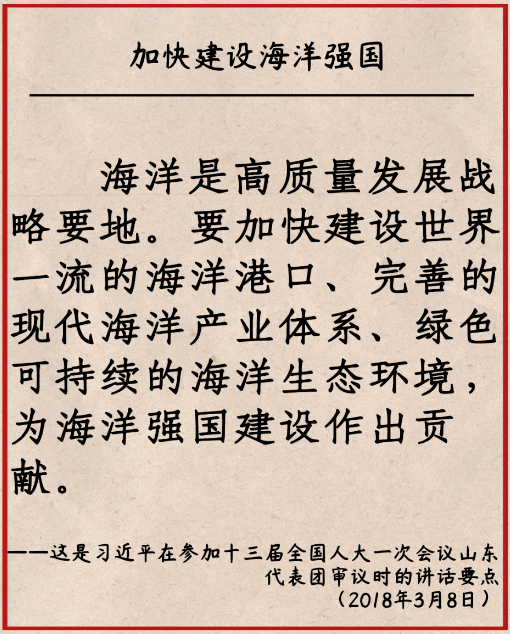 加快建设海洋强国
海洋是高质量发展战
略要地。要加快建设世界
一流的海洋港口、完善的
现代海洋产业体系、绿色
可持续的海洋生态环境，
为海洋强国建设作出贡
献。
——这是习近平在参加十三届全国人大一次会议山东
代表团审议时的讲话要点
（2018年3月8日）